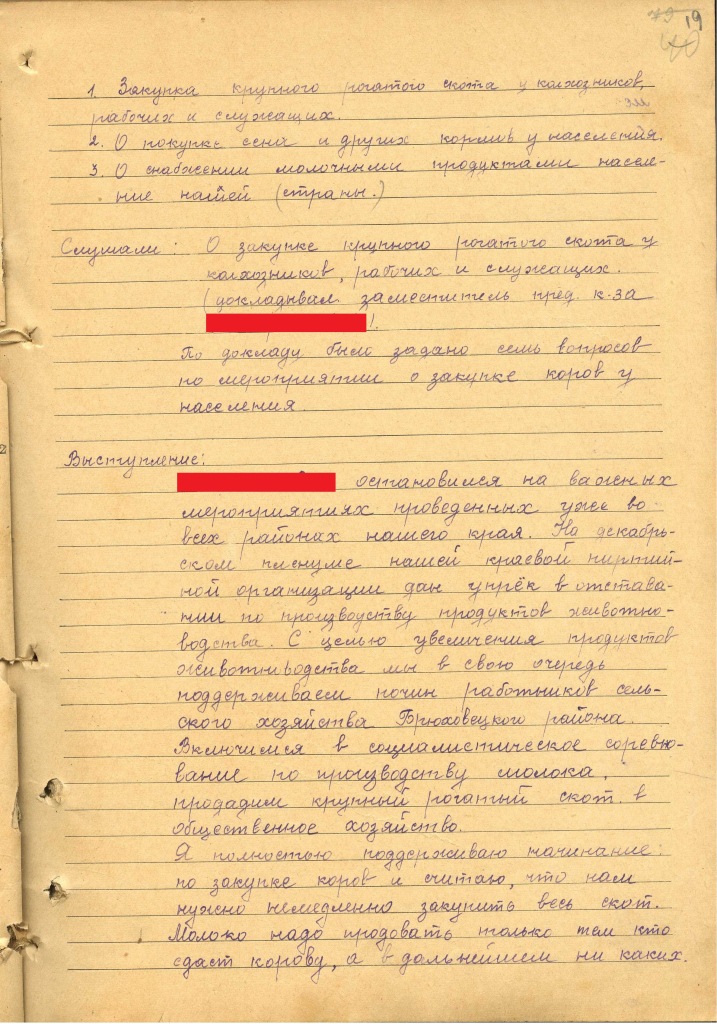 19
40
1. Закупка крупного рогатого скота у колхозников,
рабочих и служащих.
2. О покупке сена и других кормов у населения.
3. О снабжении молочными продуктами населе-
ние нашей (страны.)
Слушали: О закупке крупного рогатого скота у
колхозников, рабочих и служащих.
(докладывал заместитель пред. к-за
).
По докладу было задано семь вопросов
по мероприятии о закупке коров у
населения.
Выступление:
остановился на важных
мероприятиях проведенных уже во
всех районах нашего края. На декабрь-
ском пленуме нашей краевой партий-
ной организации дан упрёк в отстава-
нии по производству продуктов животно-
водства. С целью увеличения продуктов
животноводства мы в свою очередь
поддерживаем почин работников сель-
ского хозяйства Брюховецкого района.
Включимся в социалистическое соревно-
вание по производству молока,
продадим крупный рогатый скот в
общественное хозяйство.
Я полностью поддерживаю начинание
по закупке коров и считаю, что нам
нужно немедленно закупить весь скот.
Молоко надо продовать только тем кто
сдаст корову, а в дальнейшем ни каких.